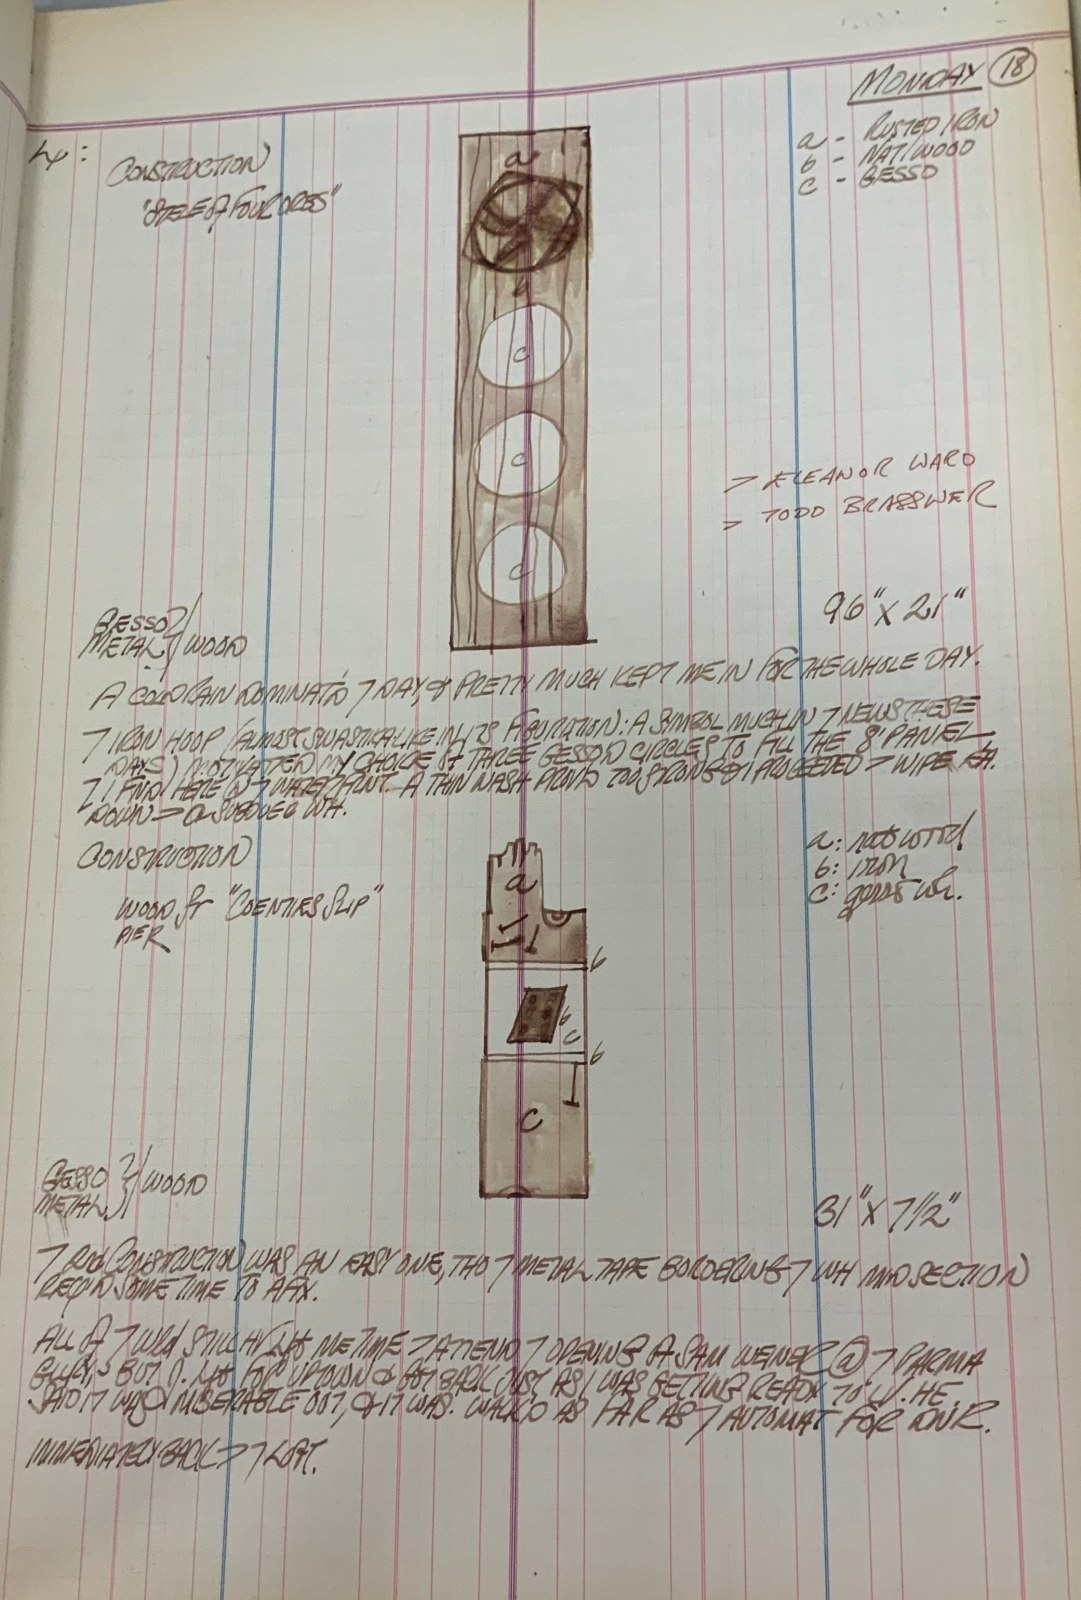 MONDAY 18
a - RUSTED IRON
b - NAT/WOOD
c - GESSO
CONSTRUCTION
"STELE OF FOUR ORBS"
a
b
c
c
c
> ELEANOR WARD
> TODD BRASSNER
96" X 21"
GESSO
METAL } / WOOD
A COLD RAIN DOMINAT'D 7 DAY, & PRETTY MUCH KEPT ME IN FOR THE WHOLE DAY.
7 IRON HOOP (ALMOST SWASTIKA LIKE IN ITS FIGURATION: A SYMBOL MUCH IN 7 NEWS THESE
DAYS) MOTIVATED MY CHOICE OF THREE GESSOD CIRCLES TO FILL THE 8' PANEL
I FIND HERE @ 7 WATERFRONT. A THIN WASH PROV'D TOO STRONG & I PROCEEDED > WIPE EA.
DOWN > A SUBDUED WH.
CONSTRUCTION
WOOD fr "COENTIES SLIP"
PIER
a: nat wood
b: iron
c: wh.
a
b
b
c
b
c
GESSO
METAL } / WOOD
31" X 7 1/2"
7 2nd (CONSTRUCTION) WAS AN EASY ONE, THO 7 METAL TAPE BORDERING 7 WH MIDSECTION
REQ'D SOME TIME TO AFIX.
ALL OF 7 STILL ME TIME > ATTEND 7 OPENING OF SAM WEINER @ 7 PARMA
BUT FOR UPTOWN & GOT BACK JUST AS I WAS GETTING READY TO LV. HE
SAID IT WAS MISERABLE OUT, & IT WAS. WALK'D AS FAR AS 7 AUTOMAT FOR DNR.
IMMEDIATELY BACK > 7 LOFT.